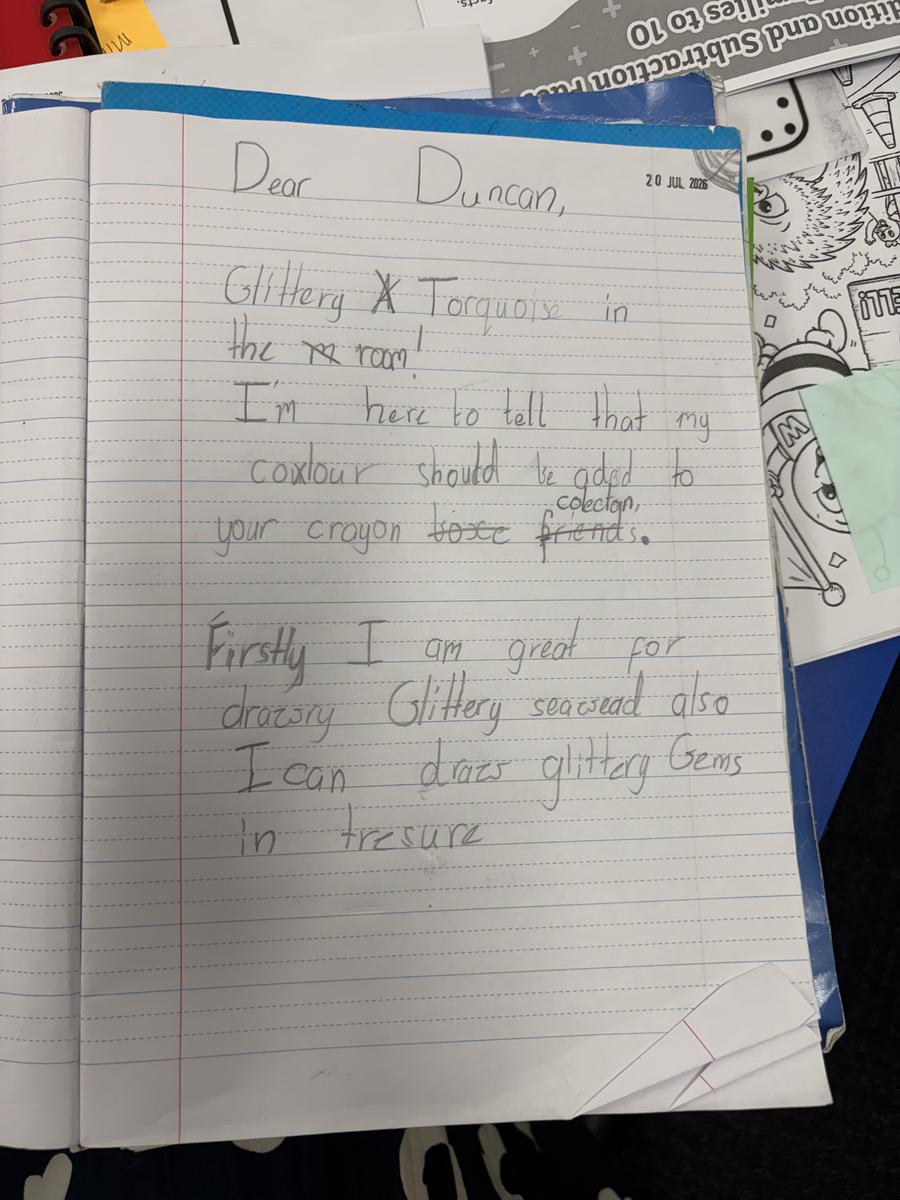 ition and Subtraction Fac
milies to 10
20 JUL 2026
Dear Duncan,
Glittery Torquoise in
the room!
I'm here to tell that my
colour should be aded to
colectan,
your crayon boxe friends.
Firstly I am great for
drawry Glittery seawead also
I can draw glittery Gems
in tresure